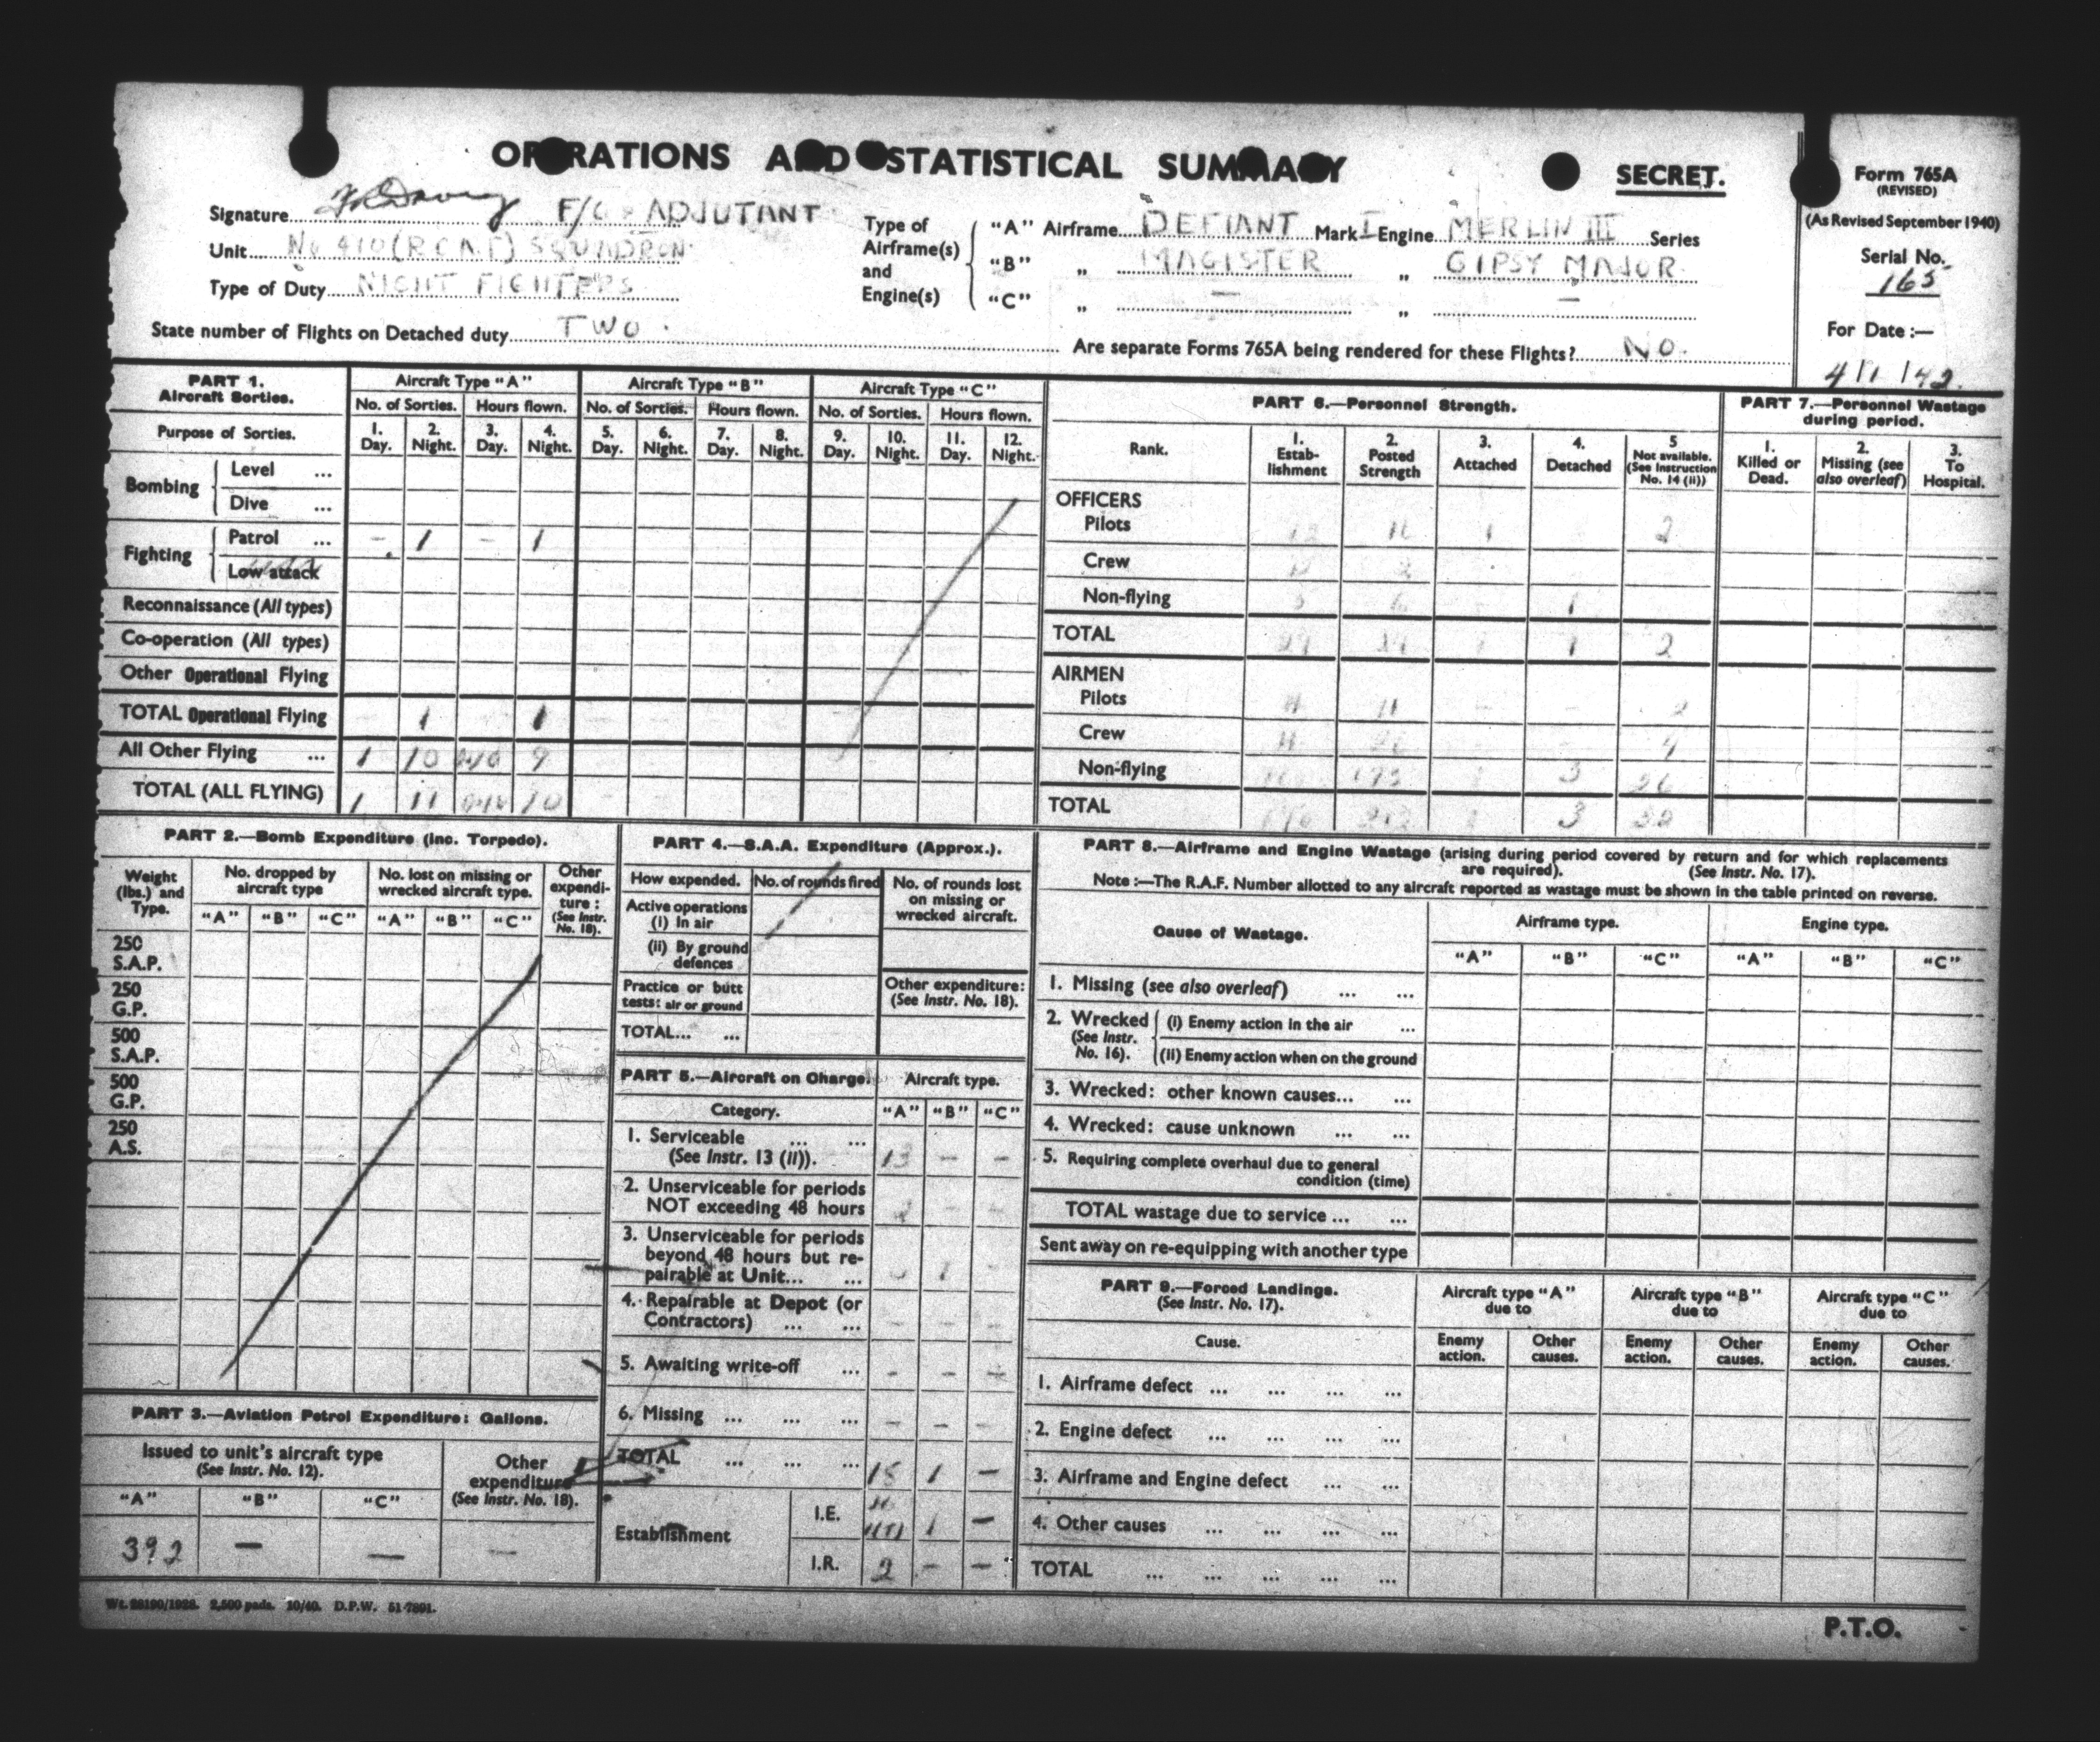 OPERATIONS AND STATISTICAL SUMMARY
SECRET.
Form 765A
(REVISED)
(As Revised September 1940)
Serial No.
165
For Date :—
4/1/42.
Signature F/O ADJUTANT
Unit No 410 (R.C.A.F) SQUADRON
Type of Duty NIGHT FIGHTERS
State number of Flights on Detached duty TWO.
Type of Airframe(s) and Engine(s)
"A" Airframe DEFIANT Mark I Engine MERLIN III Series
"B" „ MAGISTER „ GIPSY MAJOR
"C" „ — „ —
Are separate Forms 765A being rendered for these Flights? NO.
PART 1.
Aircraft Sorties.
Aircraft Type "A" Aircraft Type "B" Aircraft Type "C"
No. of Sorties. Hours flown. No. of Sorties. Hours flown. No. of Sorties. Hours flown.
Purpose of Sorties.
1. Day. 2. Night. 3. Day. 4. Night. 5. Day. 6. Night. 7. Day. 8. Night. 9. Day. 10. Night. 11. Day. 12. Night.
Bombing
Level ...
Dive ...
Fighting
Patrol ... - 1 - 1
Low attack
Reconnaissance (All types)
Co-operation (All types)
Other Operational Flying
TOTAL Operational Flying - 1 - 1
All Other Flying ... 1 10 9
TOTAL (ALL FLYING) 1 11 10
PART 6.—Personnel Strength.
Rank.
1. Estab-lishment
2. Posted Strength
3. Attached
4. Detached
5 Not available. (See Instruction No. 14 (ii))
OFFICERS
Pilots 1 2
Crew
Non-flying 1
TOTAL 1 2
AIRMEN
Pilots 11
Crew
Non-flying 3
TOTAL 3
PART 7.—Personnel Wastage
during period.
1. Killed or Dead.
2. Missing (see also overleaf)
3. To Hospital.
PART 2.—Bomb Expenditure (inc. Torpedo).
Weight (lbs.) and Type.
No. dropped by aircraft type
No. lost on missing or wrecked aircraft type.
Other expendi-ture : (See Instr. No. 18).
"A" "B" "C" "A" "B" "C"
250
S.A.P.
250
G.P.
500
S.A.P.
500
G.P.
250
A.S.
PART 3.—Aviation Petrol Expenditure: Gallons.
Issued to unit's aircraft type
(See Instr. No. 12).
Other expenditure
(See Instr. No. 18).
"A" "B" "C"
392 — — —
PART 4.—S.A.A. Expenditure (Approx.).
How expended. No. of rounds fired
No. of rounds lost on missing or wrecked aircraft.
Active operations
(i) In air
(ii) By ground defences
Practice or butt tests: air or ground
Other expenditure:
(See Instr. No. 18).
TOTAL... ...
PART 5.—Aircraft on Charge.
Aircraft type.
Category. "A" "B" "C"
1. Serviceable ... ...
(See Instr. 13 (ii)). 13 — —
2. Unserviceable for periods
NOT exceeding 48 hours 2 - -
3. Unserviceable for periods
beyond 48 hours but re-
pairable at Unit... ... 1 -
4. Repairable at Depot (or
Contractors) ... ... - - -
5. Awaiting write-off ... - - -
6. Missing ... ... ... - - -
TOTAL ... ... ... 15 1 —
Establishment
I.E. 1 —
I.R. 2 - —
PART 8.—Airframe and Engine Wastage (arising during period covered by return and for which replacements
are required). (See Instr. No. 17).
Note :—The R.A.F. Number allotted to any aircraft reported as wastage must be shown in the table printed on reverse.
Cause of Wastage.
Airframe type. Engine type.
"A" "B" "C" "A" "B" "C"
1. Missing (see also overleaf) ... ...
2. Wrecked (See Instr. No. 16).
(i) Enemy action in the air ...
(ii) Enemy action when on the ground
3. Wrecked: other known causes... ...
4. Wrecked: cause unknown ... ...
5. Requiring complete overhaul due to general
condition (time)
TOTAL wastage due to service ... ...
Sent away on re-equipping with another type
PART 9.—Forced Landings.
(See Instr. No. 17).
Aircraft type "A" due to
Aircraft type "B" due to
Aircraft type "C" due to
Cause.
Enemy action. Other causes. Enemy action. Other causes. Enemy action. Other causes.
1. Airframe defect ... ... ... ...
2. Engine defect ... ... ... ...
3. Airframe and Engine defect ... ...
4. Other causes ... ... ... ...
TOTAL ... ... ... ... ...
Wt. 28190/1928. 2,500 pads. 10/40. D.P.W. 51-7891.
P.T.O.